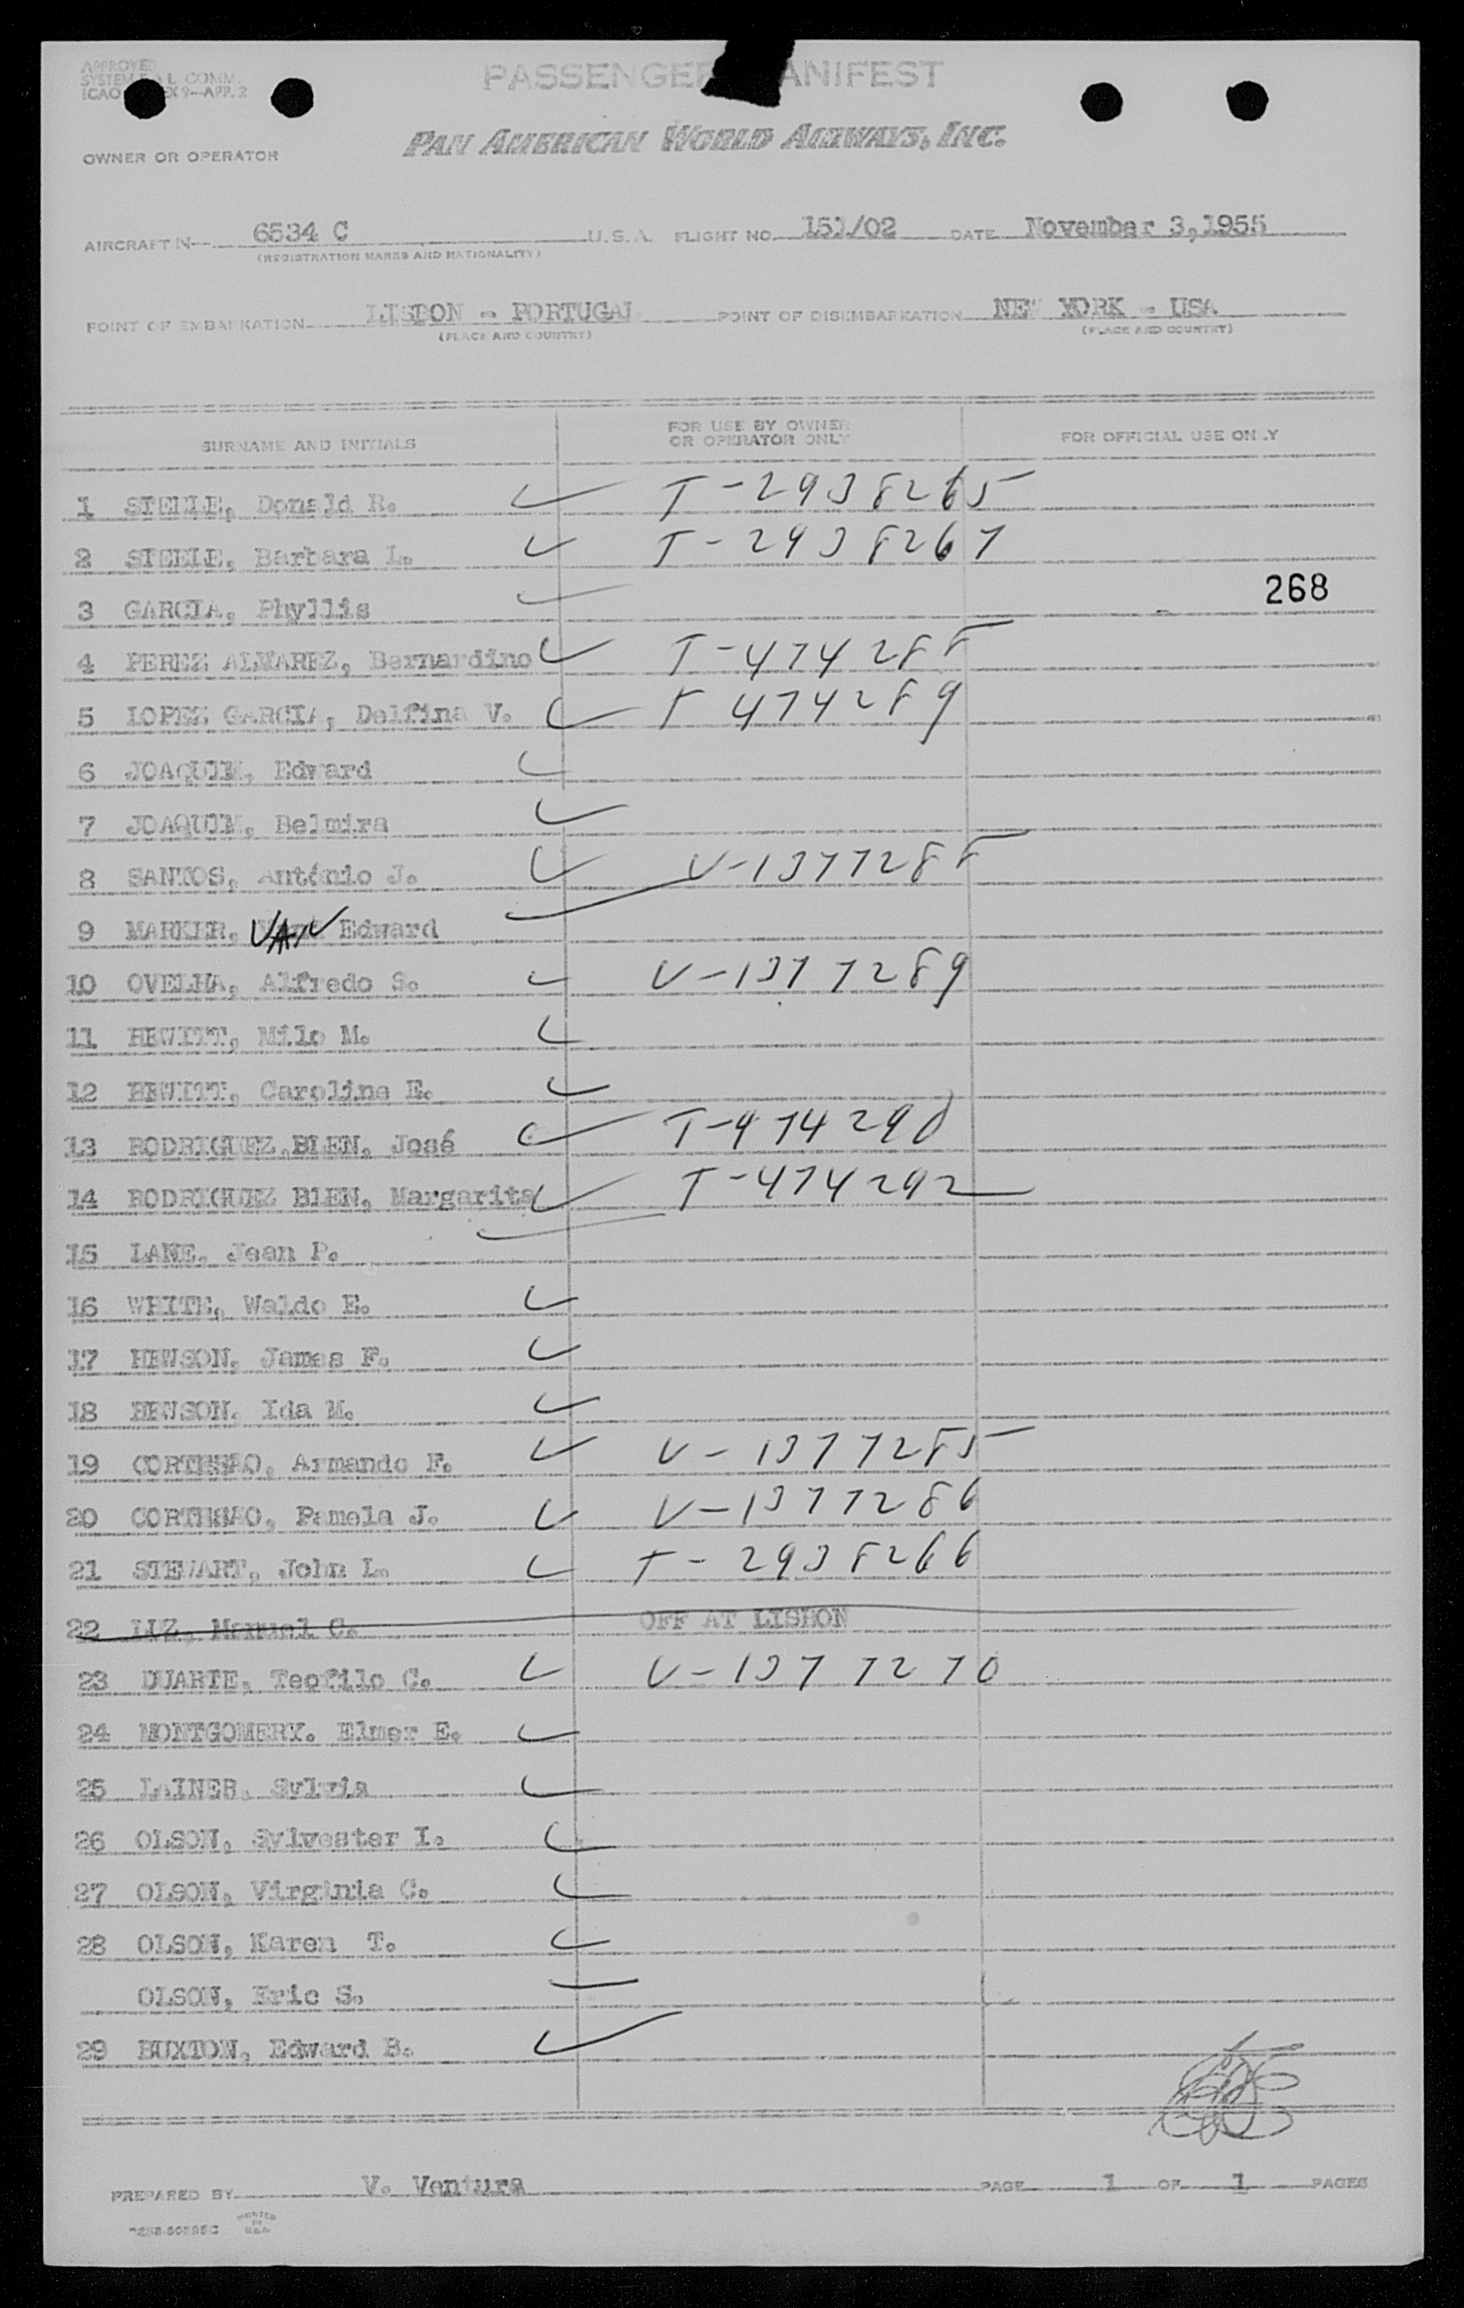 APPROVED
SYSTEM COMM.
ICAO 9—APP. 2
PASSENGER MANIFEST
OWNER OR OPERATOR PAN AMERICAN WORLD AIRWAYS, INC.
AIRCRAFT N— 6534 C U.S.A. FLIGHT NO. 151/02 DATE November 3, 1955
(REGISTRATION MARKS AND NATIONALITY)
POINT OF EMBARKATION LISBON - PORTUGAL POINT OF DISEMBARKATION NEW YORK - USA
(PLACE AND COUNTRY) (PLACE AND COUNTRY)
SURNAME AND INITIALS FOR USE BY OWNER OR OPERATOR ONLY FOR OFFICIAL USE ONLY
1 STEELE, Donald R. T-2938265
2 STEELE, Barbara L. T-2938267
268
3 GARCIA, Phyllis
4 PEREZ ALVAREZ, Bernardino T-474288
5 LOPEZ GARCIA, Delfina V. T 474289
6 JOAQUIM, Edward
7 JOAQUIM, Belmira
8 SANTOS, António J. V-1377288
9 MARKER, VAN Edward
10 OVELHA, Alfredo S. V-1377289
11 HEWITT, Milo M.
12 HEWITT, Caroline E.
13 RODRIGUEZ BLEN, José T-474290
14 RODRIGUEZ BLEN, Margarita T-474292
15 LANE, Jean P.
16 WHITE, Waldo E.
17 HEWSON, James F.
18 HEWSON, Ida M.
19 CORTESAO, Armando F. V-1377285
20 CORTESAO, Pamela J. V-1377286
21 STEWART, John L. T-2938266
22 LIZ, Manuel C. OFF AT LISBON
23 DUARTE, Teofilo C. V-1377270
24 MONTGOMERY. Elmer E.
25 LAINER, Sylvia
26 OLSON, Sylvester I.
27 OLSON, Virginia C.
28 OLSON, Karen T.
OLSON, Eric S.
29 BUXTON, Edward B.
PREPARED BY V. Ventura PAGE 1 OF 1 PAGES
PRINTED IN U.S.A.